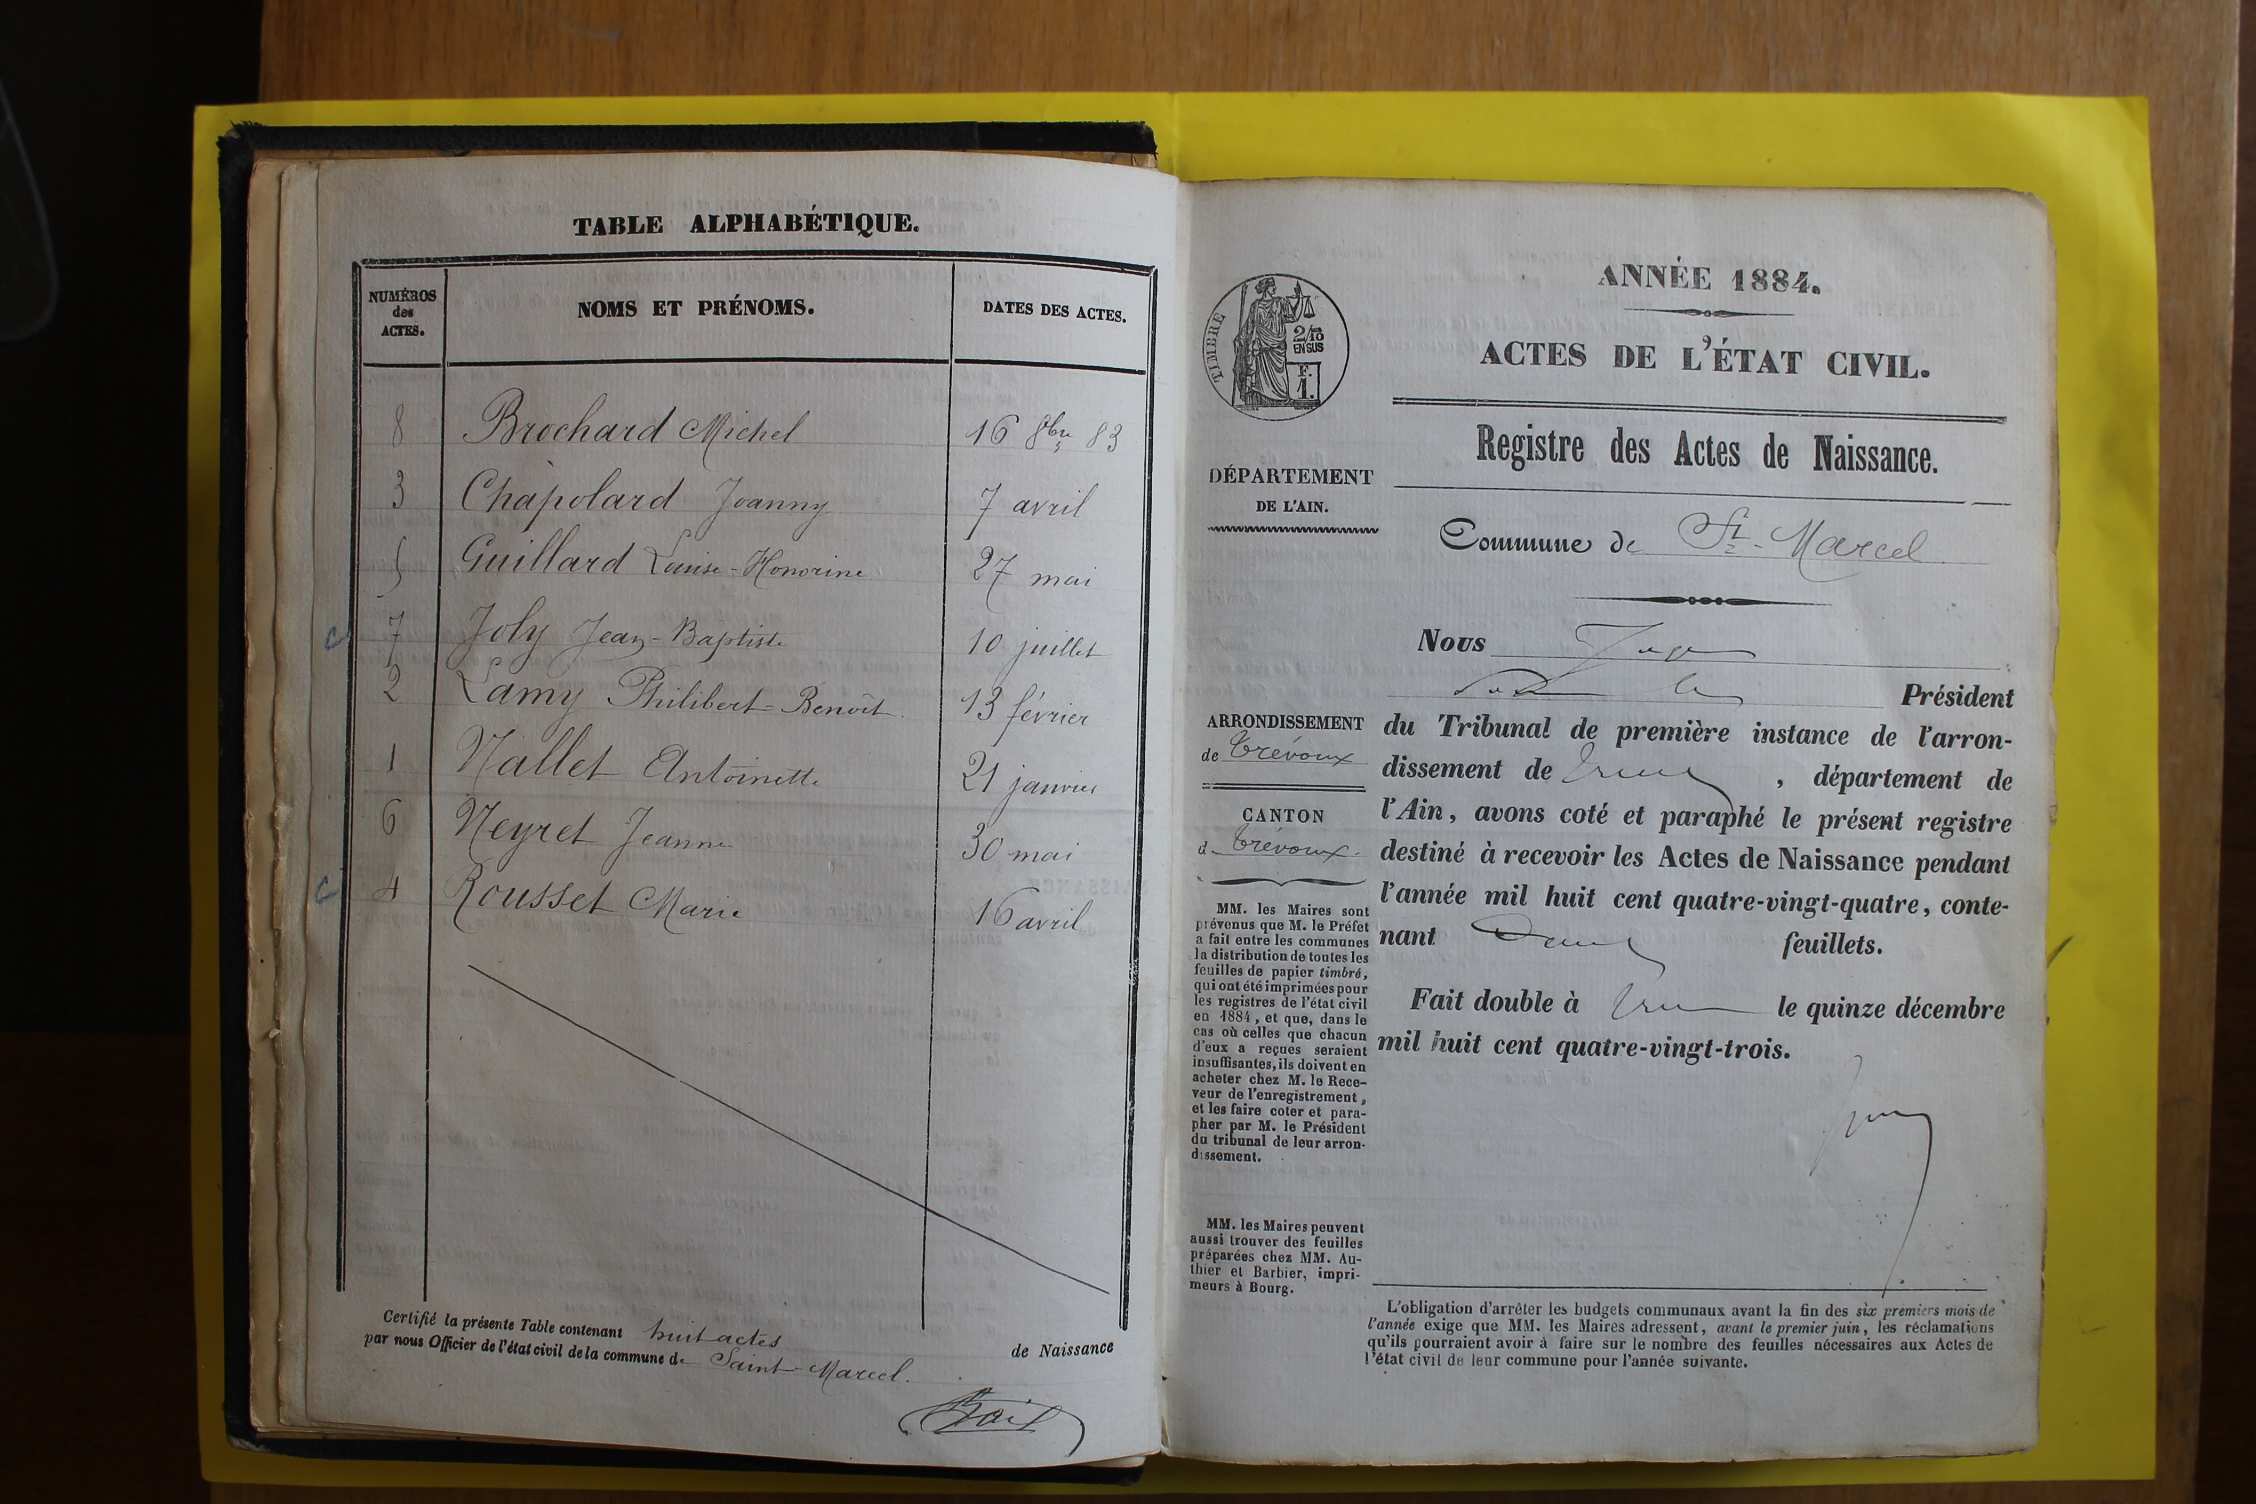 TABLE ALPHABÉTIQUE.
NUMÉROS des ACTES.
NOMS ET PRÉNOMS.
DATES DES ACTES.
8 Brochard Michel 16 8bre 83
3 Chapolard Joanny 7 avril
5 Guillard Louise-Honorine 27 mai
c 7 Joly Jean-Baptiste 10 juillet
2 Lamy Philibert-Benoît 13 février
1 Nallet Antoinette 21 janvier
6 Neyret Jeanne 30 mai
c 4 Rousset Marie 16 avril
Certifié la présente Table contenant huit actes de Naissance
par nous Officier de l'état civil de la commune de Saint-Marcel.
TIMBRE
2/10
EN SUS
F.
1.
DÉPARTEMENT
DE L'AIN.
ARRONDISSEMENT
de Trévoux
CANTON
d Trévoux.
MM. les Maires sont
prévenus que M. le Préfet
a fait entre les communes
la distribution de toutes les
feuilles de papier timbré,
qui ont été imprimées pour
les registres de l'état civil
en 1884, et que, dans le
cas où celles que chacun
d'eux a reçues seraient
insuffisantes, ils doivent en
acheter chez M. le Rece-
veur de l'enregistrement,
et les faire coter et para-
pher par M. le Président
du tribunal de leur arron-
dissement.
MM. les Maires peuvent
aussi trouver des feuilles
préparées chez MM. Au-
thier et Barbier, impri-
meurs à Bourg.
ANNÉE 1884.
ACTES DE L'ÉTAT CIVIL.
Registre des Actes de Naissance.
Commune de St-Marcel
Nous Juge
Président
du Tribunal de première instance de l'arron-
dissement de , département de
l'Ain, avons coté et paraphé le présent registre
destiné à recevoir les Actes de Naissance pendant
l'année mil huit cent quatre-vingt-quatre, conte-
nant feuillets.
Fait double à le quinze décembre
mil huit cent quatre-vingt-trois.
L'obligation d'arrêter les budgets communaux avant la fin des six premiers mois de
l'année exige que MM. les Maires adressent, avant le premier juin, les réclamations
qu'ils pourraient avoir à faire sur le nombre des feuilles nécessaires aux Actes de
l'état civil de leur commune pour l'année suivante.